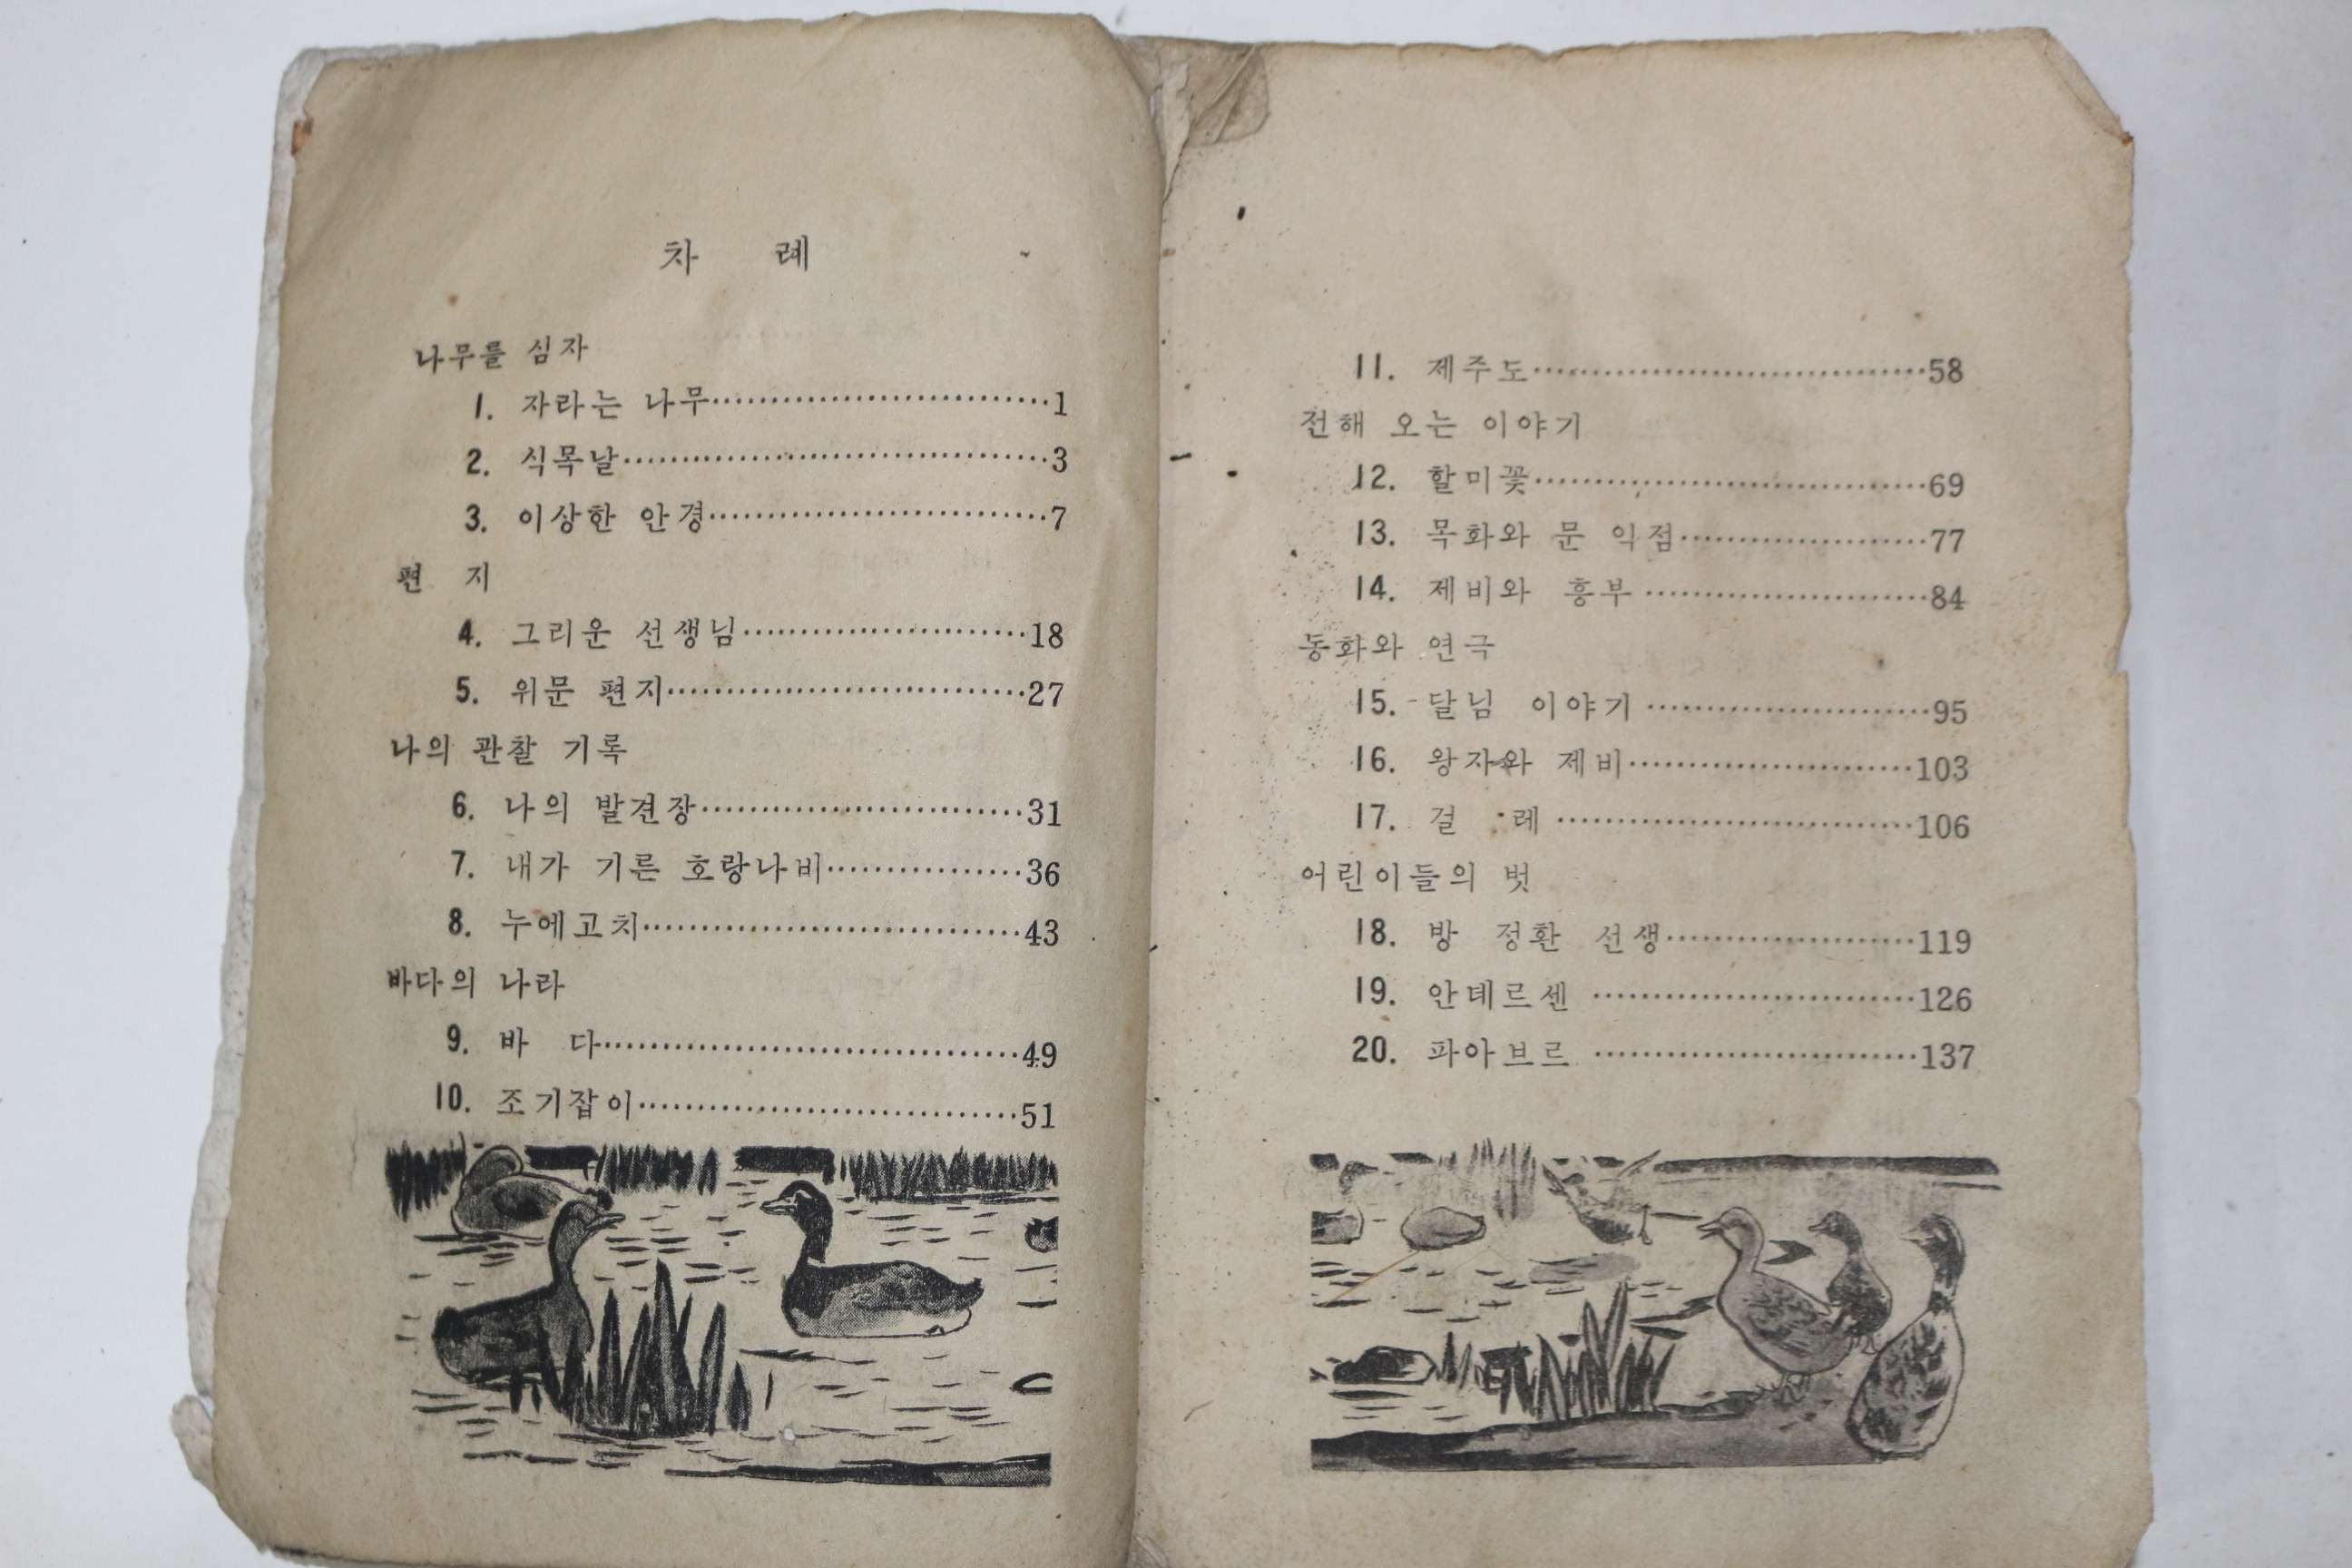 차 례
나무를 심자
1. 자라는 나무……………………………1
2. 식목날……………………………………3
3. 이상한 안경……………………………7
편 지
4. 그리운 선생님…………………………18
5. 위문 편지………………………………27
나의 관찰 기록
6. 나의 발견장……………………………31
7. 내가 기른 호랑나비…………………36
8. 누에고치…………………………………43
바다의 나라
9. 바 다……………………………………49
10. 조기잡이………………………………51
11. 제주도…………………………………58
전해 오는 이야기
12. 할미꽃…………………………………69
13. 목화와 문 익점………………………77
14. 제비와 흥부 …………………………84
동화와 연극
15. 달님 이야기 …………………………95
16. 왕자와 제비…………………………103
17. 걸 레 ………………………………106
어린이들의 벗
18. 방 정환 선생………………………119
19. 안데르센 ……………………………126
20. 파아브르 ……………………………137